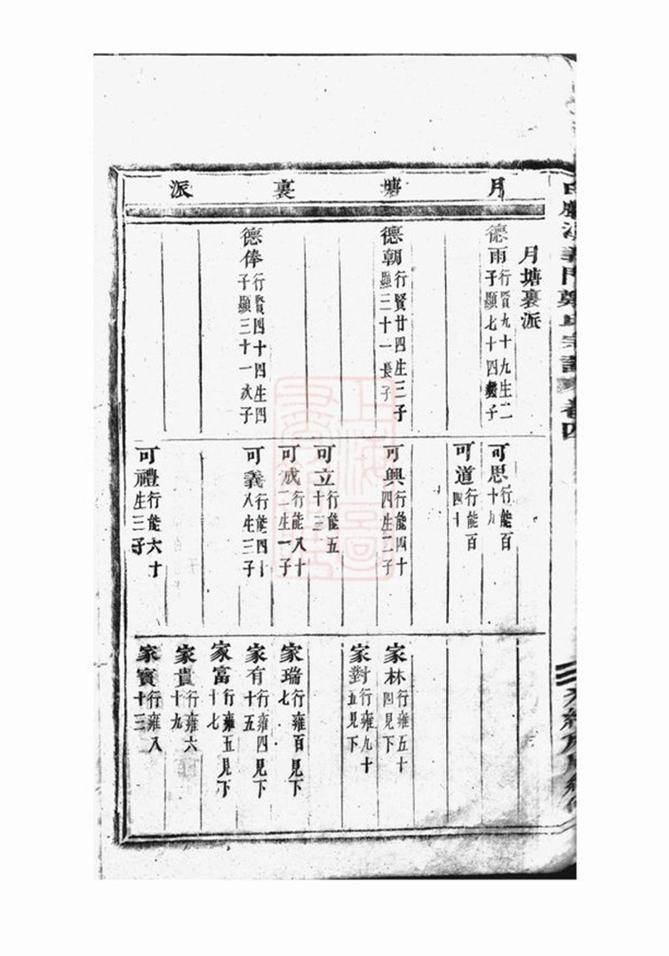 月塘裏派
月塘裏派
德雨行賢九十九生二
子于顯七十四
德朝行賢廿四生三子
顯三十一長子
德俸行賢四十四生四
子顯三十一次子
可思行能百
十九
可道行能百
四十
可興行能四十
四生二子
可立行能五
十三
可成行能八十
二生一子
可義行能四十
八生三子
可禮行能六十
生三子
家林行雍五十
四見下
家對行雍九十
五見下
家瑞行雍百見下
七
家有行雍四見下
十五
家富行雍五見下
十七
家貴行雍六
十九
家寶行雍八
十三
義門鄭氏宗譜
卷四